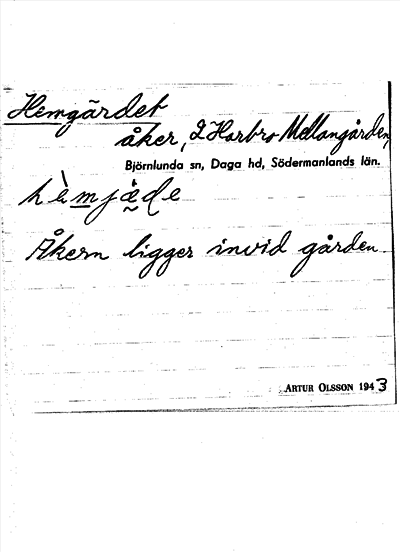 Hemgärdet
åker, I Harbro Mellangården,
Björnlunda sn, Daga hd, Södermanlands län.
hèmjæ̰de
Åkern ligger invid gården.
ARTUR OLSSON 1943